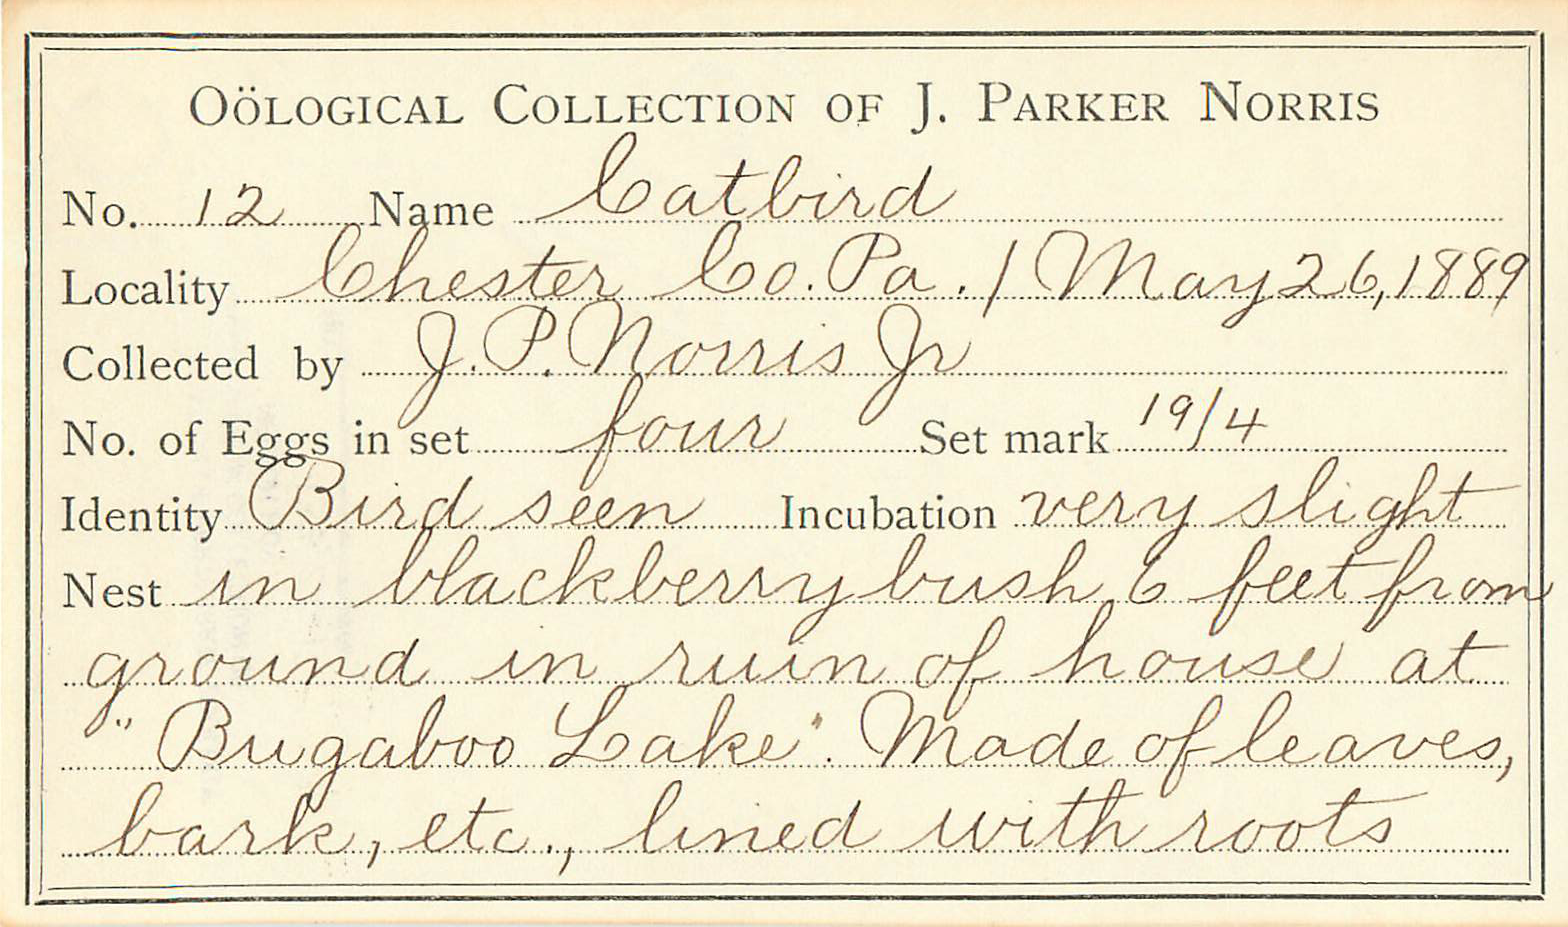 OÖLOGICAL COLLECTION OF J. PARKER NORRIS
No. 12 Name Catbird
Locality Chester Co. Pa. / May 26, 1889
Collected by J. P. Norris Jr
No. of Eggs in set four Set mark 19/4
Identity Bird seen Incubation very slight
Nest in blackberry bush 6 feet from
ground in ruin of house at
"Bugaboo Lake". Made of leaves,
bark, etc., lined with roots